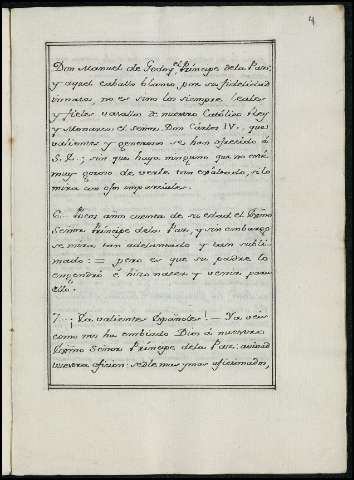 4
Don Manuel de Godoy el Príncipe de la Paz,
y aquel caballo blanco por su fidelidad
innata, no es sino los siempre leales
y fieles vasallos de nuestro Católico Rey
y Monarca el señor Don Cárlos IV; que
valientes y generosos se han ofrecido á
S. E.; sin que haya ninguno que no esté
muy gozoso de verle tan exâltado, si lo
mira con ojos imparciales.
6. Pocos años cuenta de su edad el
Señor Príncipe de la Paz, y sin embargo
se mira tan adelantado y tan subli-
mado: = pero es que su padre lo
engendró é hizo nacer y venir para
ello.
7. ¡ Ea valientes Españoles! — Ya veis
como nos ha embiado Dios á nuestro
Señor Príncipe de la Paz:
vuestra aficion: sedle mas y mas aficionados,